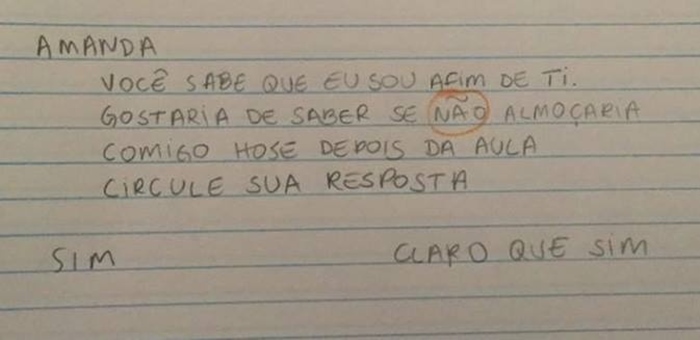 AMANDA
VOCÊ SABE QUE EU SOU AFIM DE TI.
GOSTARIA DE SABER SE NÃO ALMOÇARIA
COMIGO HOSE DEPOIS DA AULA
CIRCULE SUA RESPOSTA
SIM CLARO QUE SIM